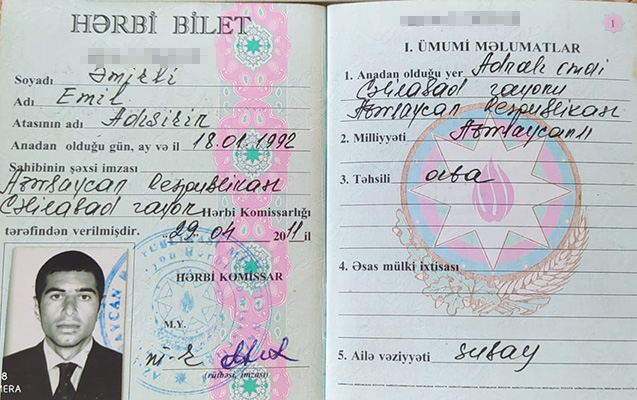 HƏRBİ BİLET
Soyadı
Adı Emil
Atasının adı
Anadan olduğu gün, ay və il 18.01.1992
Sahibinin şəxsi imzası
Azərbaycan Respublikası
Cəlilabad rayon Hərbi Komissarlığı
tərəfindən verilmişdir. "29" 04 2011 il
HƏRBİ KOMİSSAR
M.Y.
m-r
(rütbəsi, imzası)
8
MERA
1
I. ÜMUMİ MƏLUMATLAR
1. Anadan olduğu yer kəndi
Cəlilabad rayonu
Azərbaycan Respublikası
2. Milliyyəti Azərbaycanlı
3. Təhsili orta
4. Əsas mülki ixtisası
5. Ailə vəziyyəti subay